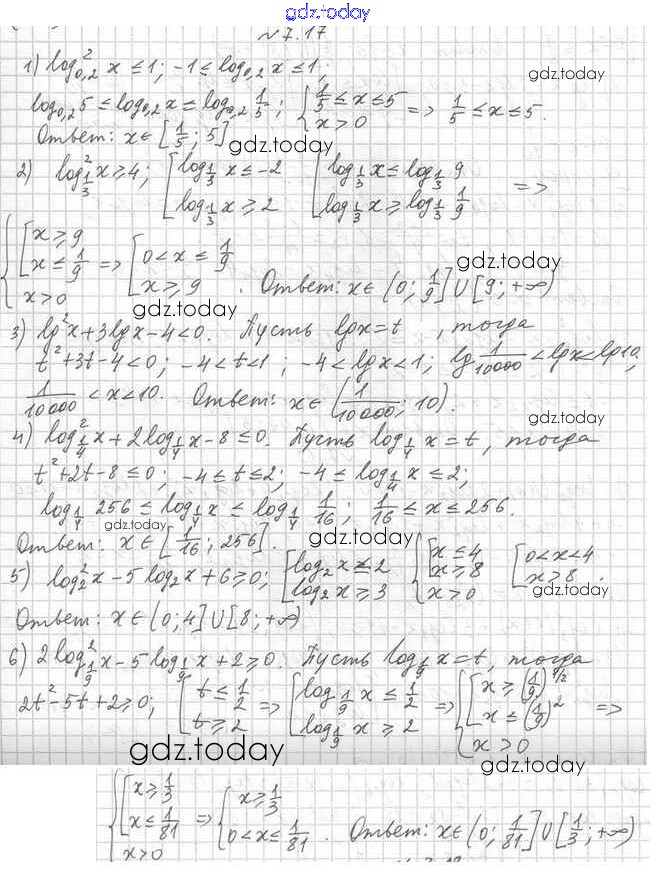 gdz.today
№7.17
1) log²₀,₂ x ≤ 1; -1 ≤ log₀,₂ x ≤ 1; gdz.today
log₀,₂ 5 ≤ log₀,₂ x ≤ log₀,₂ 1/5; { 1/5 ≤ x ≤ 5 x > 0 => 1/5 ≤ x ≤ 5.
Ответ: x ∈ [1/5; 5] gdz.today
2) log²_{1/3} x ≥ 4; [ log_{1/3} x ≤ -2 log_{1/3} x ≥ 2 [ log_{1/3} x ≤ log_{1/3} 9 log_{1/3} x ≥ log_{1/3} 1/9 =>
{ [ x ≥ 9 x ≤ 1/9 x > 0 => [ 0 < x ≤ 1/9 x ≥ 9 . Ответ: x ∈ (0; 1/9] U [9; +∞) gdz.today
gdz.today
3) lg²x + 3lgx - 4 < 0. Пусть lgx = t , тогда
t² + 3t - 4 < 0; -4 < t < 1 ; -4 < lgx < 1; lg 1/10000 < lgx < lg10,
1/10000 < x < 10. Ответ: x ∈ (1/10000; 10).
gdz.today
4) log²_{1/4} x + 2log_{1/4} x - 8 ≤ 0. Пусть log_{1/4} x = t, тогда
t² + 2t - 8 ≤ 0; -4 ≤ t ≤ 2; -4 ≤ log_{1/4} x ≤ 2;
log_{1/4} 256 ≤ log_{1/4} x ≤ log_{1/4} 1/16; 1/16 ≤ x ≤ 256.
gdz.today gdz.today
Ответ: x ∈ [1/16; 256].
5) log²₂ x - 5 log₂ x + 6 ≥ 0; [ log₂ x ≤ 2 log₂ x ≥ 3 { [ x ≤ 4 x ≥ 8 x > 0 [ 0 < x < 4 x ≥ 8 . gdz.today
Ответ: x ∈ (0; 4] U [8; +∞)
6) 2log²_{1/9} x - 5 log_{1/9} x + 2 ≥ 0. Пусть log_{1/9} x = t, тогда
2t² - 5t + 2 ≥ 0; [ t ≤ 1/2 t ≥ 2 => [ log_{1/9} x ≤ 1/2 log_{1/9} x ≥ 2 => { [ x ≥ (1/9)^{1/2} x ≤ (1/9)² x > 0 =>
gdz.today gdz.today
{ [ x ≥ 1/3 x ≤ 1/81 x > 0 => { x ≥ 1/3 0 < x ≤ 1/81 . Ответ: x ∈ (0; 1/81] U [1/3; +∞)
gdz.today